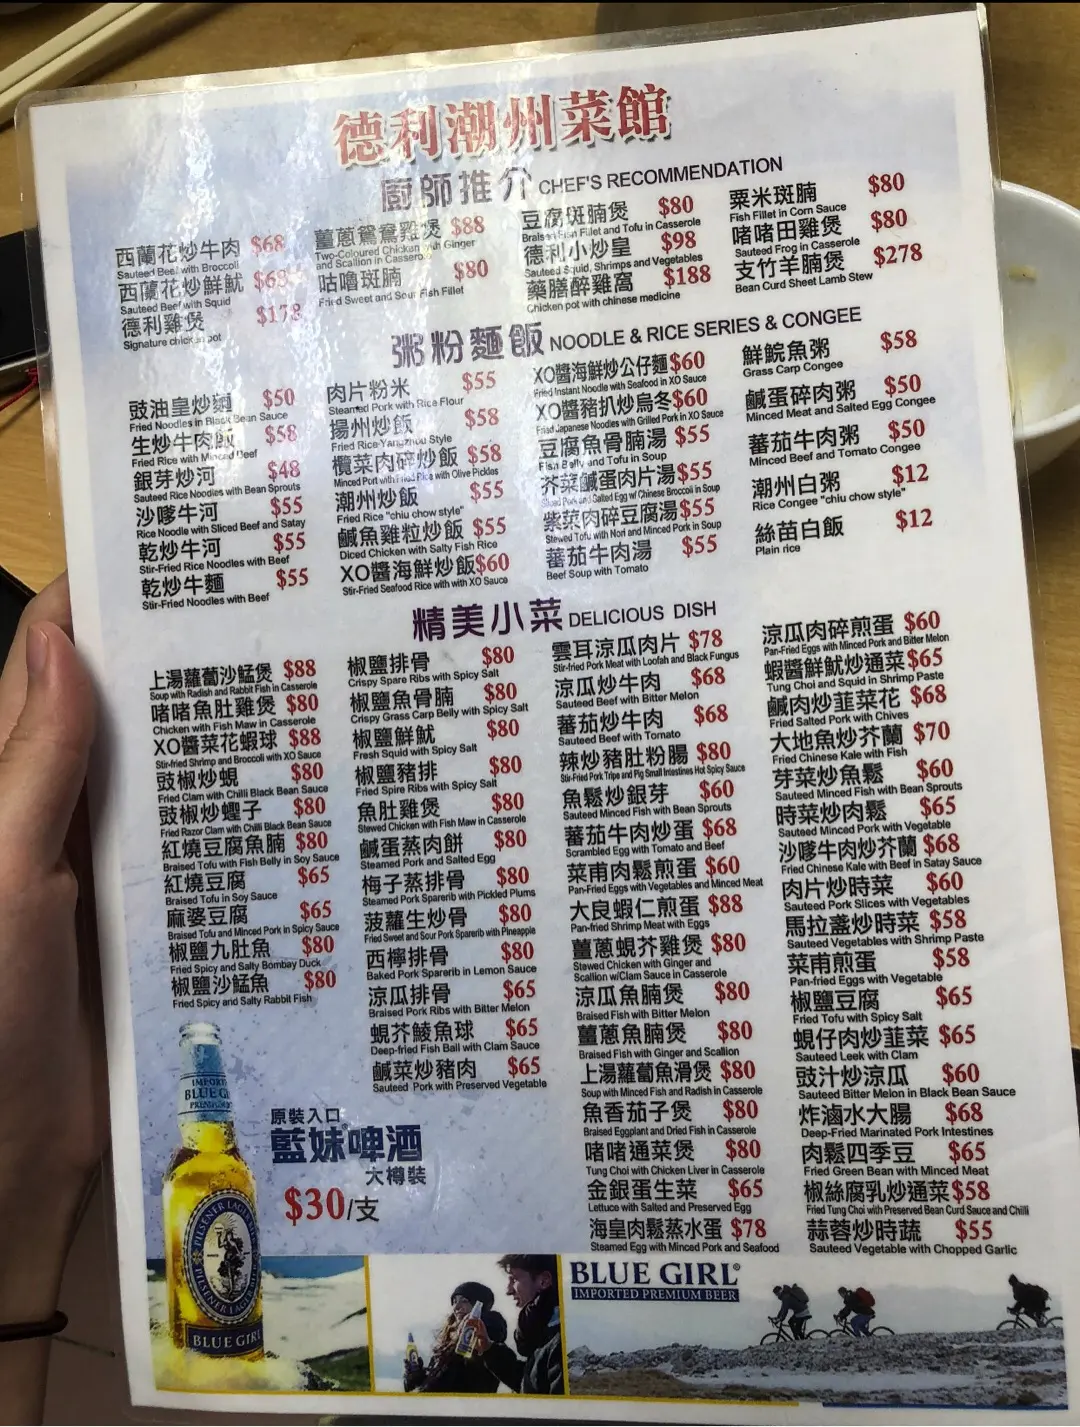 德利潮州菜館
廚師推介 CHEF'S RECOMMENDATION
西蘭花炒牛肉 $68
Sauteed Beef with Broccoli
西蘭花炒鮮魷
Sauteed Beef with Squid
德利雞煲 $178
Signature chicken pot
薑蔥鴛鴦雞煲 $88
Two-Coloured Chicken with Ginger
and Scallion in Casserole
咕嚕斑腩 $80
Fried Sweet and Sour Fish Fillet
豆腐斑腩煲 $80
Braised Fish Fillet and Tofu in Casserole
德利小炒皇 $98
Sauteed Squid, Shrimps and Vegetables
藥膳醉雞窩 $188
Chicken pot with chinese medicine
粟米斑腩 $80
Fish Fillet in Corn Sauce
啫啫田雞煲 $80
Sauteed Frog in Casserole
支竹羊腩煲 $278
Bean Curd Sheet Lamb Stew
粥粉麵飯 NOODLE & RICE SERIES & CONGEE
豉油皇炒麵 $50
Fried Noodles in Black Bean Sauce
生炒牛肉飯 $58
Fried Rice with Minced Beef
銀芽炒河 $48
Sauteed Rice Noodles with Bean Sprouts
沙嗲牛河 $55
Rice Noodle with Sliced Beef and Satay
乾炒牛河 $55
Stir-Fried Rice Noodles with Beef
乾炒牛麵 $55
Stir-Fried Noodles with Beef
肉片粉米 $55
Steamed Pork with Rice Flour
揚州炒飯 $58
Fried Rice Yangzhou Style
欖菜肉碎炒飯 $58
Minced Port with Fried Rice with Olive Pickles
潮州炒飯 $55
Fried Rice "chiu chow style"
鹹魚雞粒炒飯 $55
Diced Chicken with Salty Fish Rice
XO醬海鮮炒飯 $60
Stir-Fried Seafood Rice with with XO Sauce
XO醬海鮮炒公仔麵 $60
Fried Instant Noodle with Seafood in XO Sauce
XO醬豬扒炒烏冬 $60
Fried Japanese Noodles with Grilled Pork in XO Sauce
豆腐魚骨腩湯 $55
Fish Belly and Tofu in Soup
芥菜鹹蛋肉片湯 $55
Sliced Pork and Salted Egg w/ Chinese Broccoli in Soup
紫菜肉碎豆腐湯 $55
Stewed Tofu with Nori and Minced Pork in Soup
蕃茄牛肉湯 $55
Beef Soup with Tomato
鮮鯇魚粥 $58
Grass Carp Congee
鹹蛋碎肉粥 $50
Minced Meat and Salted Egg Congee
蕃茄牛肉粥 $50
Minced Beef and Tomato Congee
潮州白粥 $12
Rice Congee "chiu chow style"
絲苗白飯 $12
Plain rice
精美小菜 DELICIOUS DISH
上湯蘿蔔沙鯭煲 $88
Soup with Radish and Rabbit Fish in Casserole
啫啫魚肚雞煲 $80
Chicken with Fish Maw in Casserole
XO醬菜花蝦球 $88
Stir-fried Shrimp and Broccoli with XO Sauce
豉椒炒蜆 $80
Fried Clam with Chilli Black Bean Sauce
豉椒炒蟶子 $80
Fried Razor Clam with Chilli Black Bean Sauce
紅燒豆腐魚腩 $80
Braised Tofu with Fish Belly in Soy Sauce
紅燒豆腐 $65
Braised Tofu in Soy Sauce
麻婆豆腐 $65
Braised Tofu and Minced Pork in Spicy Sauce
椒鹽九肚魚 $80
Fried Spicy and Salty Bombay Duck
椒鹽沙鯭魚 $80
Fried Spicy and Salty Rabbit Fish
椒鹽排骨 $80
Crispy Spare Ribs with Spicy Salt
椒鹽魚骨腩 $80
Crispy Grass Carp Belly with Spicy Salt
椒鹽鮮魷 $80
Fresh Squid with Spicy Salt
椒鹽豬排 $80
Fried Spire Ribs with Spicy Salt
魚肚雞煲 $80
Stewed Chicken with Fish Maw in Casserole
鹹蛋蒸肉餅 $80
Steamed Pork and Salted Egg
梅子蒸排骨 $80
Steamed Pork Sparerib with Pickled Plums
菠蘿生炒骨 $80
Fried Sweet and Sour Pork Sparerib with Pineapple
西檸排骨 $80
Baked Pork Sparerib in Lemon Sauce
涼瓜排骨 $65
Braised Pork Ribs with Bitter Melon
蜆芥鯪魚球 $65
Deep-fried Fish Ball with Clam Sauce
鹹菜炒豬肉 $65
Sauteed Pork with Preserved Vegetable
雲耳涼瓜肉片 $78
Stir-fried Pork Meat with Loofah and Black Fungus
涼瓜炒牛肉 $68
Sauteed Beef with Bitter Melon
蕃茄炒牛肉 $68
Sauteed Beef with Tomato
辣炒豬肚粉腸 $80
Stir-Fried Pork Tripe and Pig Small Intestines Hot Spicy Sauce
魚鬆炒銀芽 $60
Sauteed Minced Fish with Bean Sprouts
蕃茄牛肉炒蛋 $68
Scrambled Egg with Tomato and Beef
菜甫肉鬆煎蛋 $60
Pan-Fried Eggs with Vegetables and Minced Meat
大良蝦仁煎蛋 $88
Pan-fried Shrimp Meat with Eggs
薑蔥蜆芥雞煲 $80
Stewed Chicken with Ginger and
Scallion w/Clam Sauce in Casserole
涼瓜魚腩煲 $80
Braised Fish with Bitter Melon
薑蔥魚腩煲 $80
Braised Fish with Ginger and Scallion
上湯蘿蔔魚滑煲 $80
Soup with Minced Fish and Radish in Casserole
魚香茄子煲 $80
Braised Eggplant and Dried Fish in Casserole
啫啫通菜煲 $80
Tung Choi with Chicken Liver in Casserole
金銀蛋生菜 $65
Lettuce with Salted and Preserved Egg
海皇肉鬆蒸水蛋 $78
Steamed Egg with Minced Pork and Seafood
涼瓜肉碎煎蛋 $60
Pan-Fried Eggs with Minced Pork and Bitter Melon
蝦醬鮮魷炒通菜 $65
Tung Choi and Squid in Shrimp Paste
鹹肉炒韮菜花 $68
Fried Salted Pork with Chives
大地魚炒芥蘭 $70
Fried Chinese Kale with Fish
芽菜炒魚鬆 $60
Sauteed Minced Fish with Bean Sprouts
時菜炒肉鬆 $65
Sauteed Minced Pork with Vegetable
沙嗲牛肉炒芥蘭 $68
Fried Chinese Kale with Beef in Satay Sauce
肉片炒時菜 $60
Sauteed Pork Slices with Vegetables
馬拉盞炒時菜 $58
Sauteed Vegetables with Shrimp Paste
菜甫煎蛋 $58
Pan-fried Eggs with Vegetable
椒鹽豆腐 $65
Fried Tofu with Spicy Salt
蜆仔肉炒韮菜 $65
Sauteed Leek with Clam
豉汁炒涼瓜 $60
Sauteed Bitter Melon in Black Bean Sauce
炸滷水大腸 $68
Deep-Fried Marinated Pork Intestines
肉鬆四季豆 $65
Fried Green Bean with Minced Meat
椒絲腐乳炒通菜 $58
Fried Tung Choi with Preserved Bean Curd Sauce and Chilli
蒜蓉炒時蔬 $55
Sauteed Vegetable with Chopped Garlic
原裝入口
藍妹啤酒
大樽裝
$30/支
PILSENER LAGER
BLUE GIRL
BLUE GIRL®
IMPORTED PREMIUM BEER